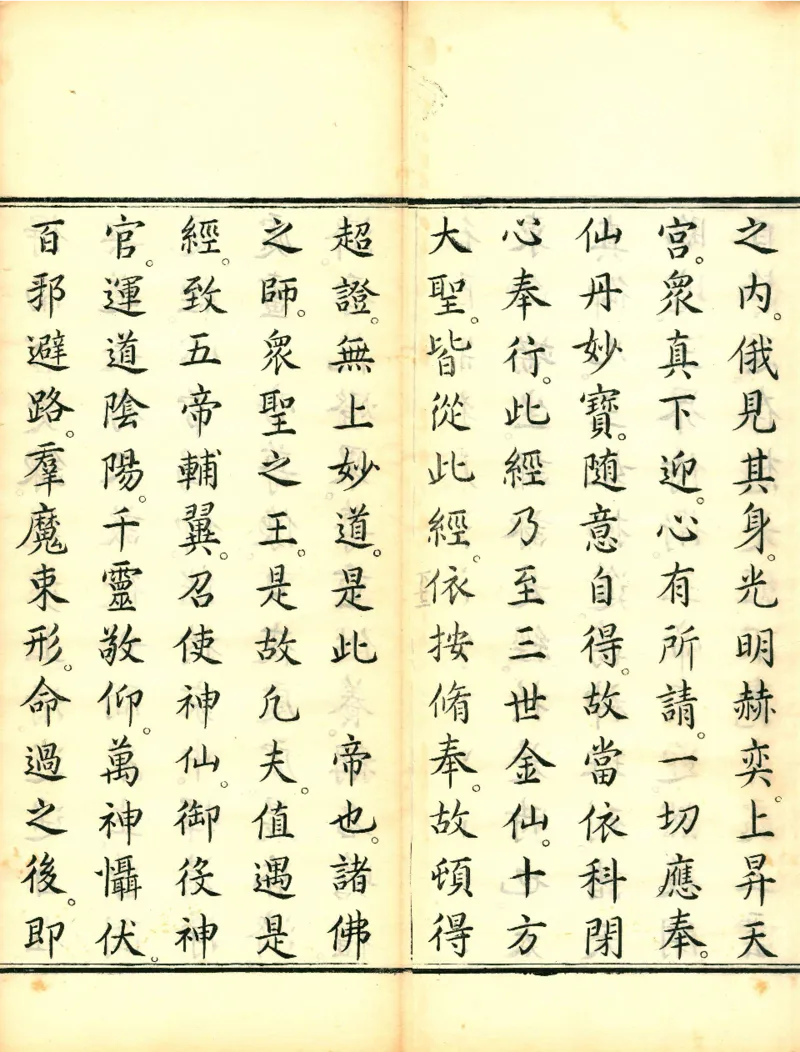 之内。俄見其身。光明赫奕。上昇天
宫。衆真下迎。心有所請。一切應奉。
仙丹妙寳。随意自得。故當依科閉
心奉行。此經乃至三世金仙。十方
大聖。皆從此經。依按脩奉。故頓得
超證。無上妙道。是此　帝也。諸佛
之師。衆聖之王。是故凢夫。值遇是
經。致五帝輔翼。召使神仙。御役神
官。運道陰陽。千靈敬仰。萬神懾伏。
百邪避路。羣魔束形。命過之後。即